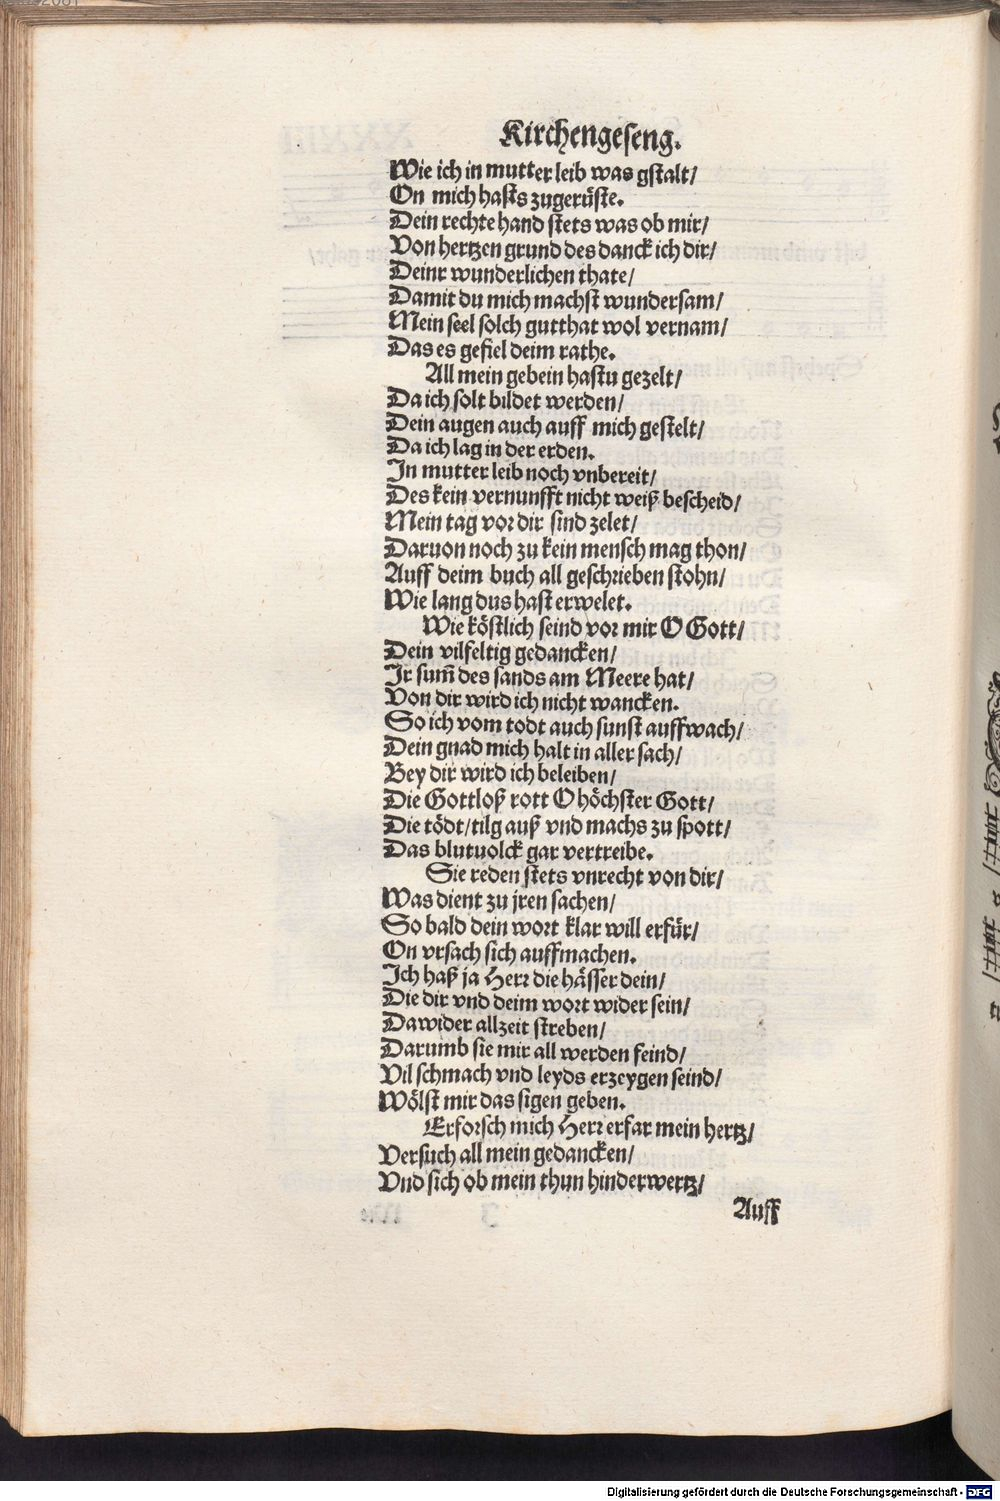 Kirchengeseng.
Wie ich in mutter leib was gstalt/
On mich hasts zugerüste.
Dein rechte hand stets was ob mir/
Von hertzen grund des danck ich dir/
Deinr wunderlichen thate/
Damit du mich machst wundersam/
Mein seel solch gutthat wol vernam/
Das es gefiel deim rathe.
All mein gebein hastu gezelt/
Da ich solt bildet werden/
Dein augen auch auff mich gestelt/
Da ich lag in der erden.
In mutter leib noch vnbereit/
Des kein vernunfft nicht weiß bescheid/
Mein tag vor dir sind zelet/
Daruon noch zu kein mensch mag thon/
Auff deim buch all geschrieben stohn/
Wie lang dus hast erwelet.
Wie köstlich seind vor mir O Gott/
Dein vilfeltig gedancken/
Ir sum̃ des sands am Meere hat/
Von dir wird ich nicht wancken.
So ich vom todt auch sunst auffwach/
Dein gnad mich halt in aller sach/
Bey dir wird ich beleiben/
Die Gottloß rott O höchster Gott/
Die tödt/tilg auß vnd machs zu spott/
Das blutuolck gar vertreibe.
Sie reden stets vnrecht von dir/
Was dient zu jren sachen/
So bald dein wort klar will erfür/
On vrsach sich auffmachen.
Ich haß ja Herr die hässer dein/
Die dir vnd deim wort wider sein/
Dawider allzeit streben/
Darumb sie mir all werden feind/
Vil schmach vnd leyds erzeygen seind/
Wölst mir das sigen geben.
Erforsch mich Herr erfar mein hertz/
Versuch all mein gedancken/
Vnd sich ob mein thun hinderwertz/
Auff
Digitalisierung gefördert durch die Deutsche Forschungsgemeinschaft - DFG